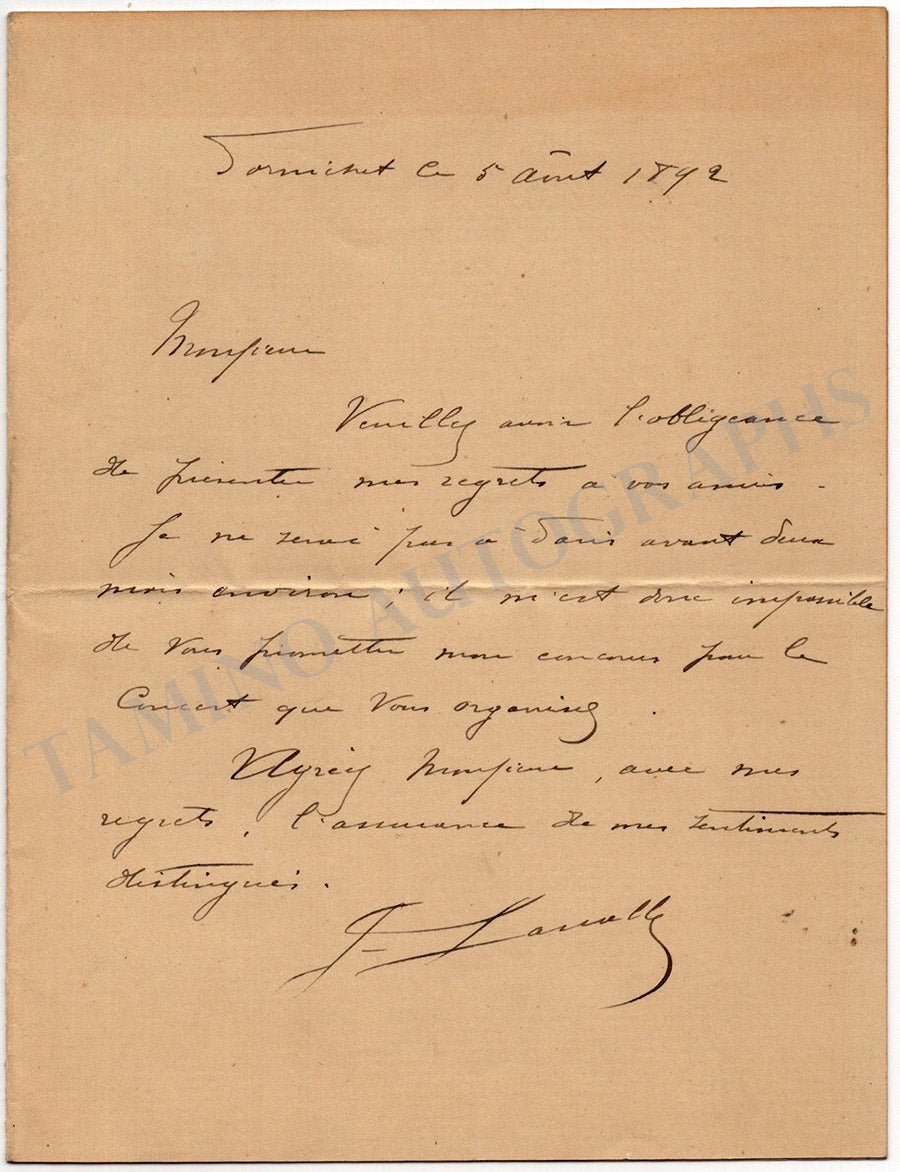 Pornichet le 5 Août 1892
Monsieur
Veuillez avoir l'obligeance
de présenter mes regrets à vos amis.
Je ne serai pas à Paris avant deux
mois environ ; il m'est donc impossible
de Vous promettre mon concours pour le
Concert que Vous organisez.
Agréez Monsieur, avec mes
regrets, l'assurance de mes sentiments
distingués.
TAMINO AUTOGRAPHS